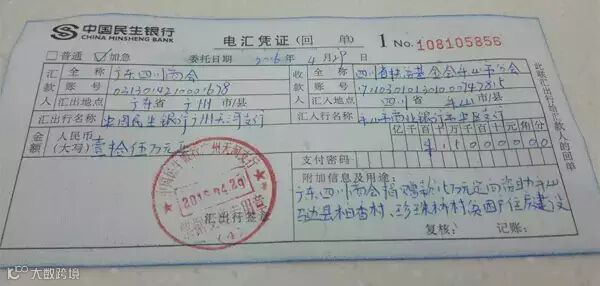 中国民生银行
CHINA MINSHENG BANK
电汇凭证(回单) 1 No. 108105856
□普通 ☑加急 委托日期 2016年4月29日
汇款人 全称 广东四川商会 收款人 全称 四川省扶贫基金会乐山市分会
账号 账号
汇出地点 广东省广州市/县 汇入地点 四川省乐山市/县
汇出行名称 中国民生银行广州天河支行 汇入行名称 乐山市商业银行
金额 人民币(大写) 壹拾伍万元正 亿千百十万千百十元角分
¥15000000
支付密码
附加信息及用途:
广东四川商会捐赠款15万元定向资助乐山
马边县柏香村、珍珠桥村贫困户住房建设
中国民生银行广州天河支行
2016.04.29
(4)
汇出行签章
复核: 记账:
此联汇出行给汇款人的回单
大数跨境